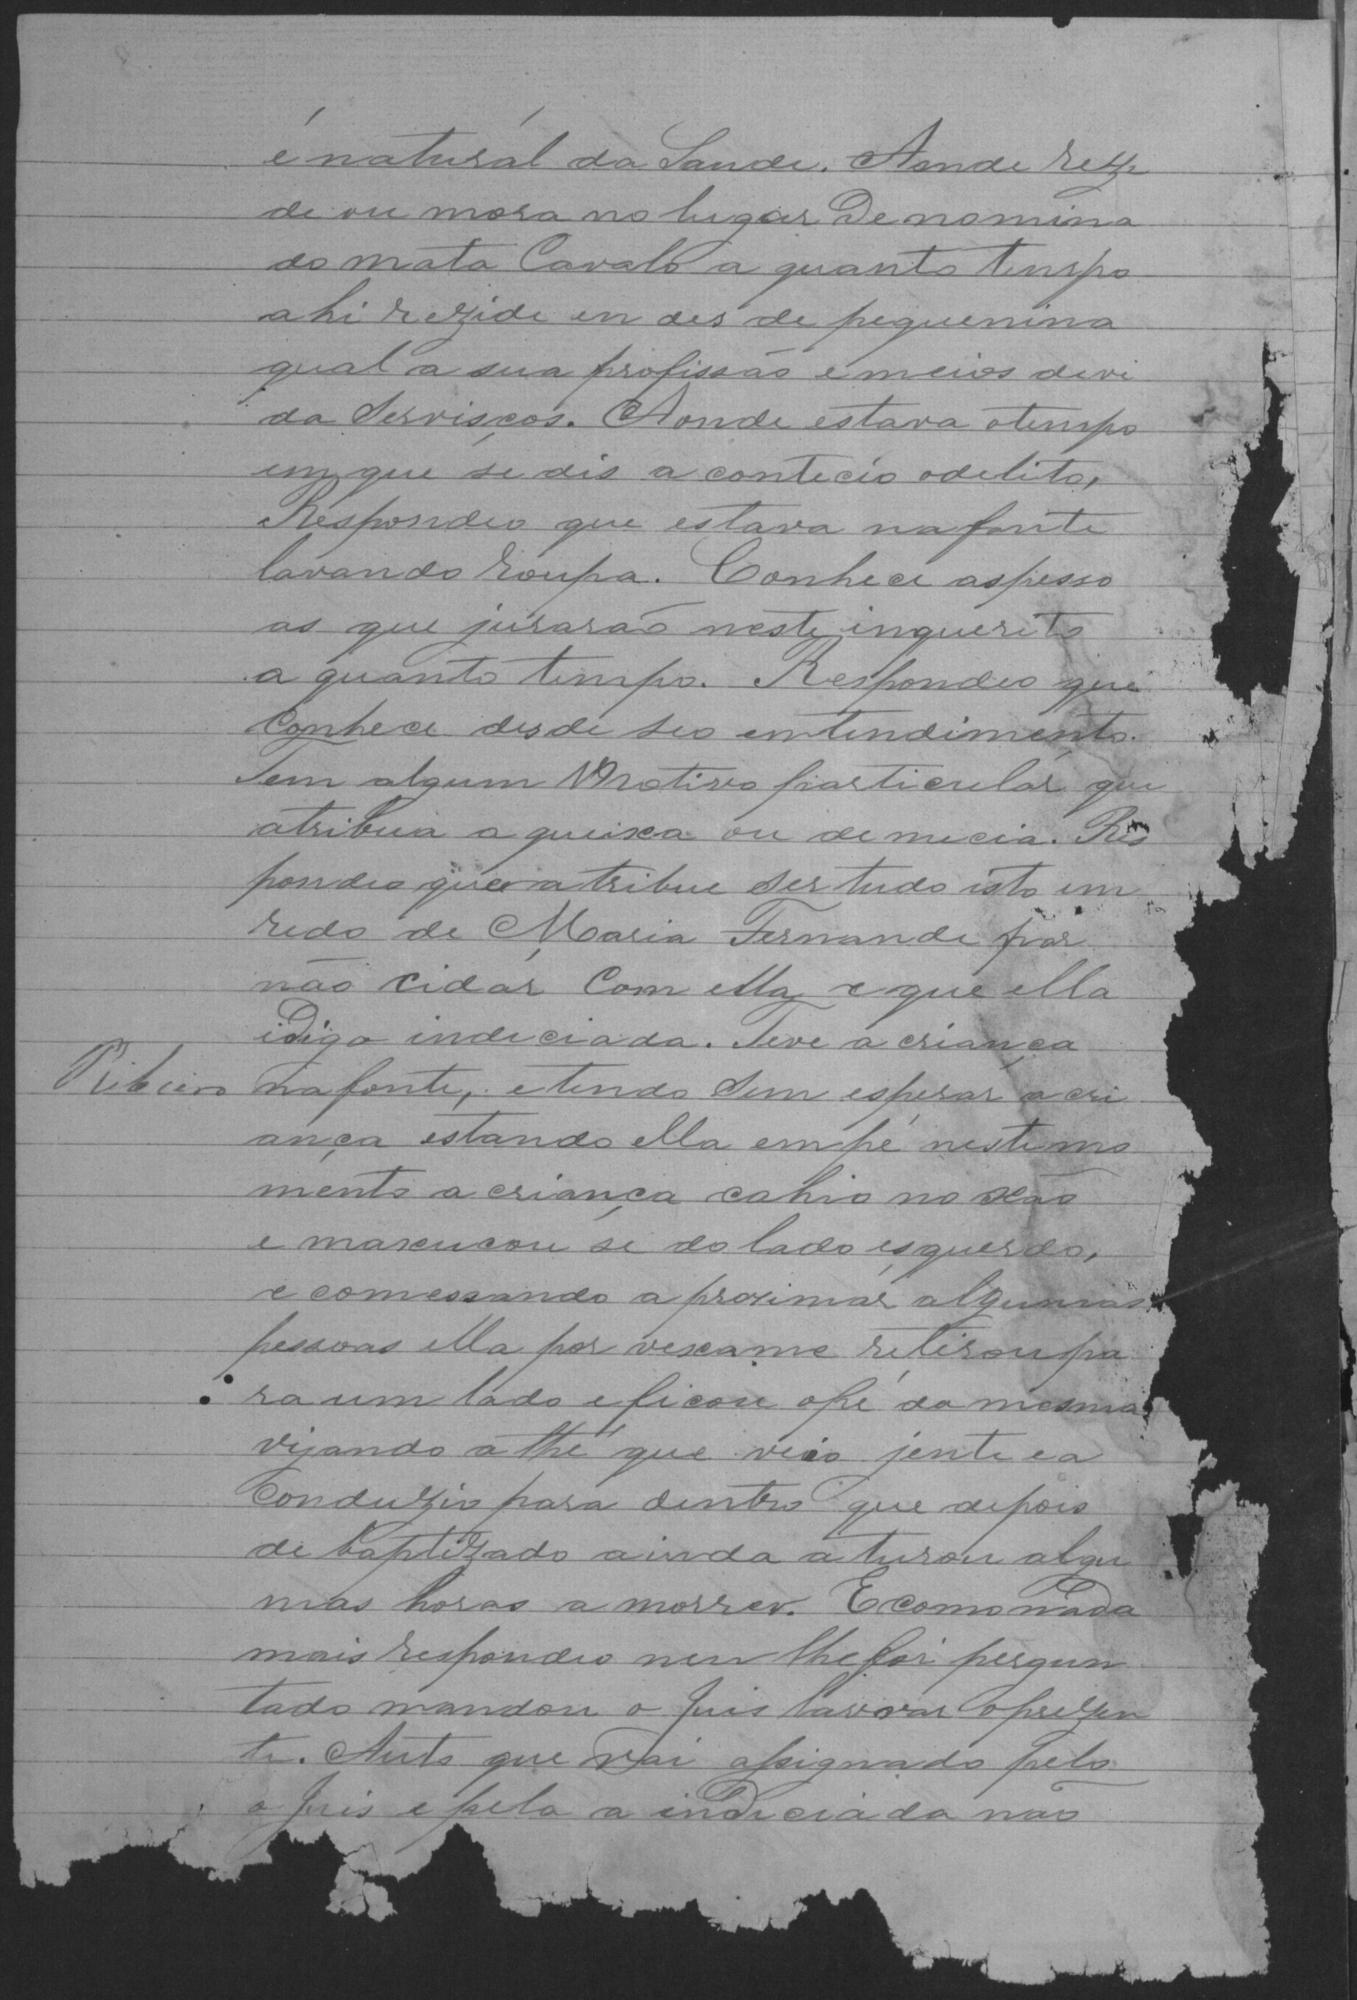 é naturál da Saude. Aonde rezi
de ou mora no lugar Denomina
do mata Cavalo a quanto tempo
ahi rezide en des de pequenina
qual a sua profissão e meios devi
da Serviscos. Aonde estava o tempo
em que sé dis a contecio o delito,
Respondeo que estava na fonte
lavando roupa. Conhece as pesso
as que jurarão neste inquerito
a quanto tempo. Respondeo que
Conhece desde seo entendimento.
Tem algum Motivo particulár que
atribua a queixa ou denuncia. Res
pondeo que atribue ser tudo isto em
redo de Maria Fernande por
não cidár Com ella e que ella
Digo indiciada. Teve a criança
Ribeiro na fonte, e tendo Sem esperár a cri
ança estando ella em pé neste mo
mento a criança cahio no xão
e maxucou sé do lado esquerdo,
e comessando a proximár algumas
pessoas ella por vexame retirou pa
ra um lado e ficou o pé da mesma
vijando athé que veio jente e a
Conduzio para dentro que depois
de baptizado ainda aturou algu
mas horas a morrer. E como nada
mais respondeo nem lhe foi pergun
tado mandou o Juis lavrar o prezen
te. Auto que vai assignado pelo
o Juis e pela a indiciada não